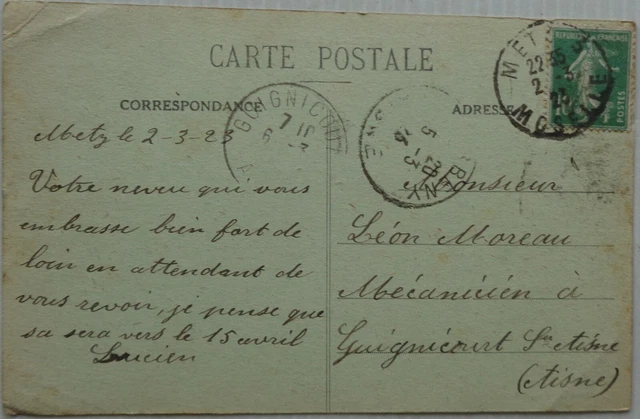 CARTE POSTALE
CORRESPONDANCE
ADRESSE
Metz le 2-3-23
Votre neveu qui vous
embrasse bien fort de
loin en attendant de
vous revoir, je pense que
sa sera vers le 15 avril
Lucien
Monsieur
Léon Moreau
Mécanicien à
Guignicourt Sur Aisne
(Aisne)
GUIGNICOURT
7 10
6 -3
5 -3
METZ
22 35
2 - 3
MOSELLE
REPUBLIQUE FRANÇAISE